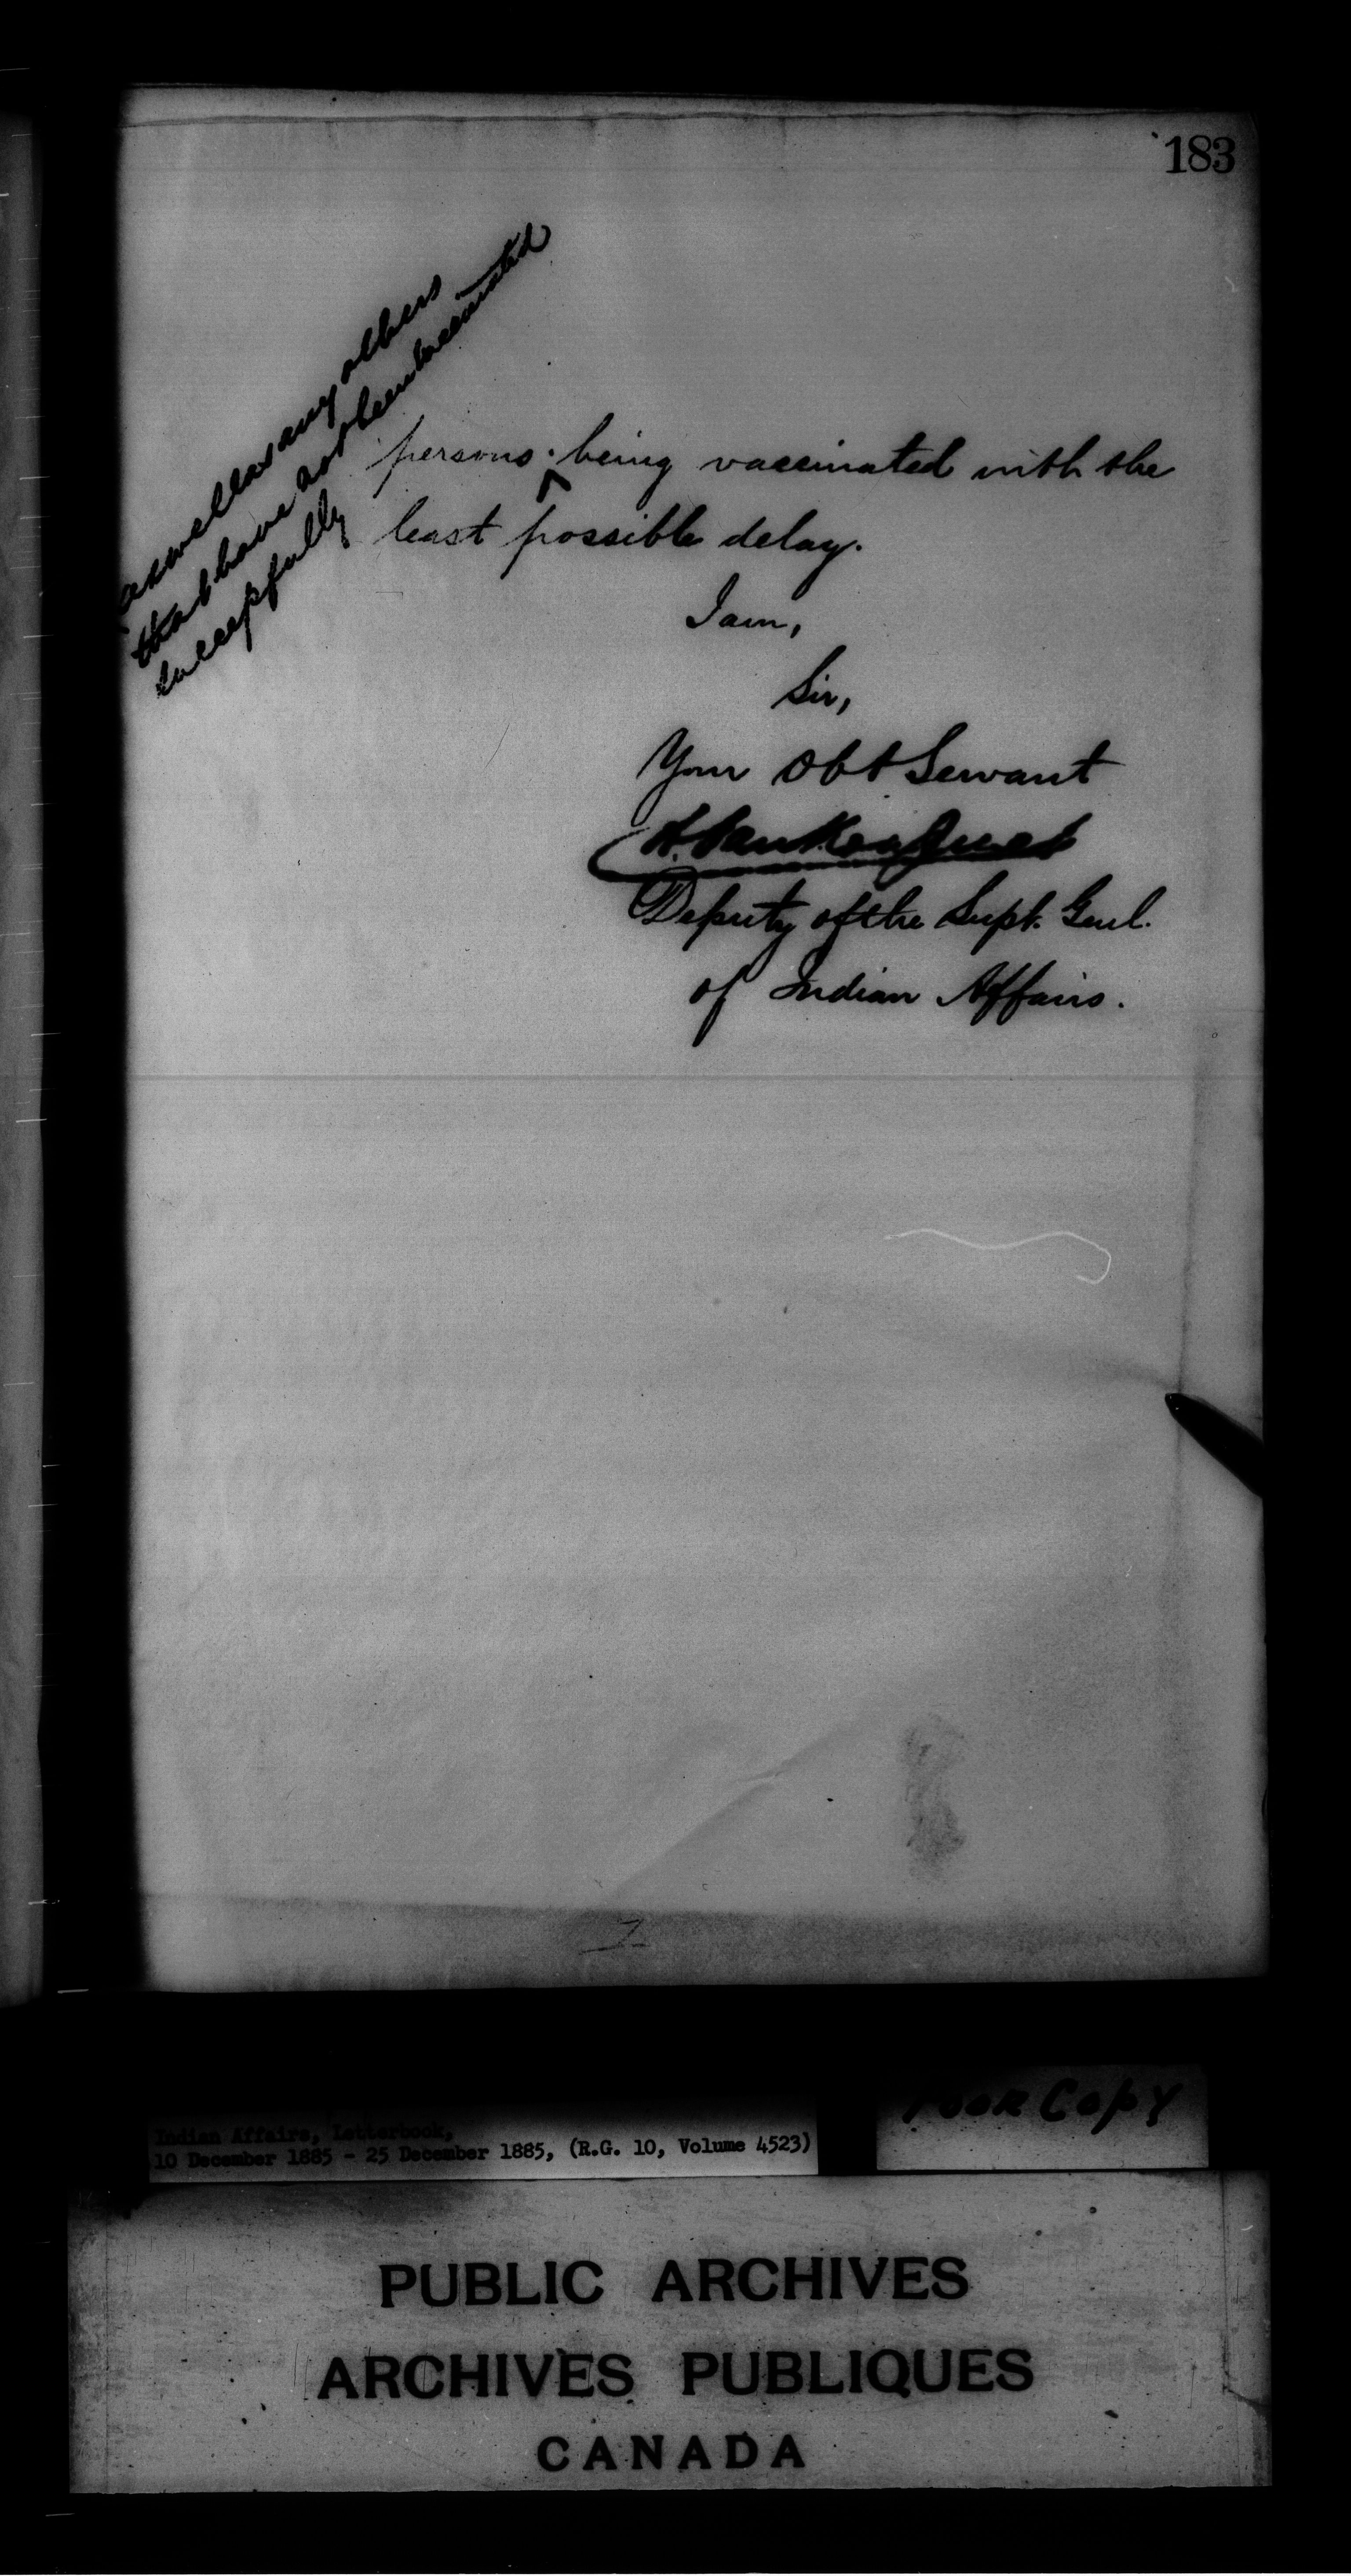 183
as well as any others
that have not been vaccinated
successfully
persons ^ being vaccinated with the
least possible delay.
I am,
Sir,
Your Obt Servant
L. VanKoughnet
Deputy of the Supt. Genl.
of Indian Affairs.
Indian Affairs, Letterbook,
10 December 1885 - 25 December 1885, (R.G. 10, Volume 4523)
Poor Copy
PUBLIC ARCHIVES
ARCHIVES PUBLIQUES
CANADA